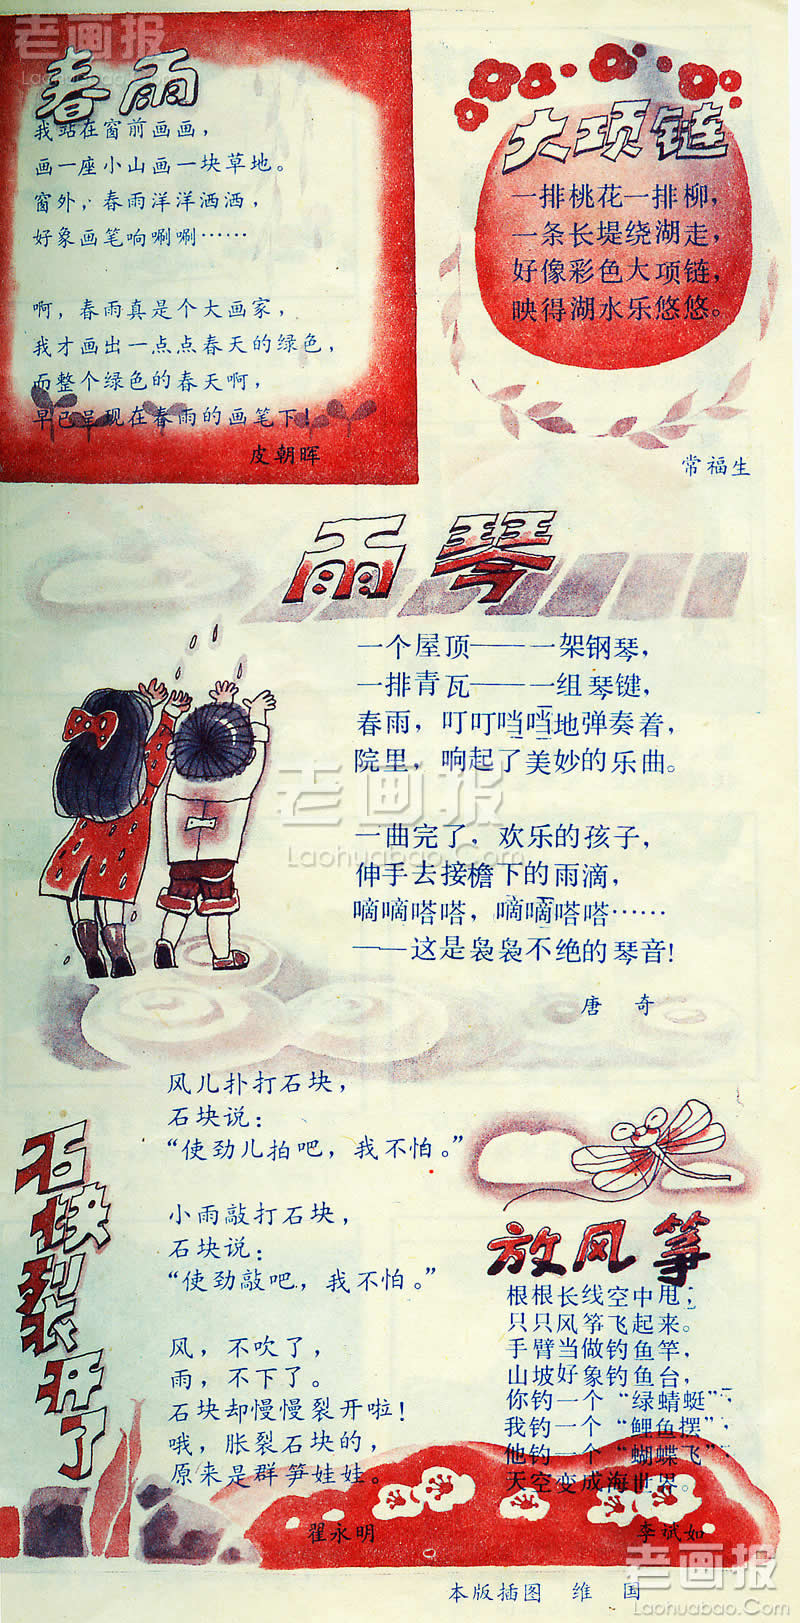 老画报
Laohuabao.Com
春雨
我站在窗前画画，
画一座小山画一块草地。
窗外，春雨洋洋洒洒，
好象画笔响唰唰……
啊，春雨真是个大画家，
我才画出一点点春天的绿色，
而整个绿色的春天啊，
早已呈现在春雨的画笔下！
皮朝晖
大项链
一排桃花一排柳，
一条长堤绕湖走，
好像彩色大项链，
映得湖水乐悠悠。
常福生
雨琴
一个屋顶——一架钢琴，
一排青瓦——一组琴键，
春雨，叮叮当当地弹奏着，
院里，响起了美妙的乐曲。
一曲完了，欢乐的孩子，
伸手去接檐下的雨滴，
嘀嘀嗒嗒，嘀嘀嗒嗒……
——这是袅袅不绝的琴音！
唐奇
老画报
Laohuabao.Com
石块裂开了
风儿扑打石块，
石块说：
“使劲儿拍吧，我不怕。”
小雨敲打石块，
石块说：
“使劲敲吧，我不怕。”
风，不吹了，
雨，不下了。
石块却慢慢裂开啦！
哦，胀裂石块的，
原来是群笋娃娃。
翟永明
放风筝
根根长线空中甩，
只只风筝飞起来。
手臂当做钓鱼竿，
山坡好象钓鱼台，
你钓一个“绿蜻蜓”，
我钓一个“鲤鱼摆”，
他钓一个“蝴蝶飞”
天空变成海世界。
李斌如
本版插图 维国
老画报
Laohuabao.Com